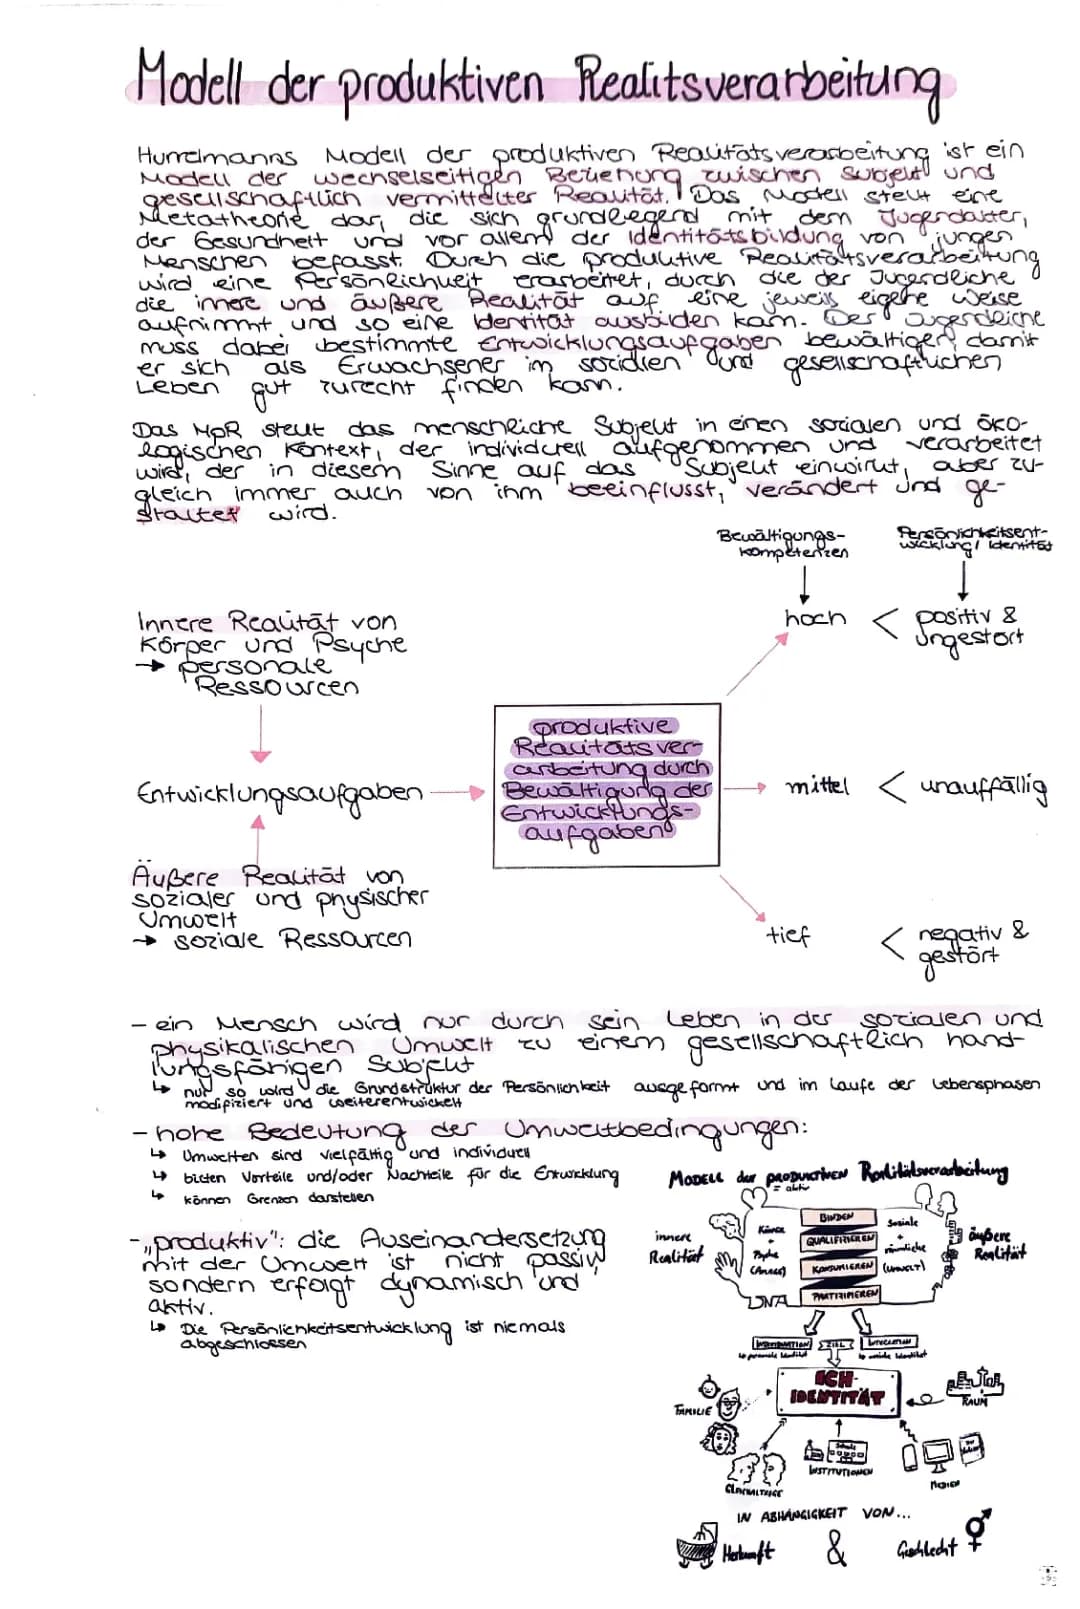 Modell der produktiven Realitsverarbeitung
Hurrelmanns Modell der produktiven Realitätsverarbeitung ist ein
Modell der wechselseitigen Beziehung zwischen Subjekt und
gesellschaftlich vermittelter Realität. Das Modell stellt eine
Metatheorie dar, die sich grundlegend mit dem Jugendalter,
der Gesundheit und vor allem der Identitätsbildung von jungen
Menschen befasst. Durch die produktive Realitätsverarbeitung
wird eine Persönlichkeit erarbeitet, durch die der Jugendliche
die innere und äußere Realität auf eine jeweils eigene Weise
aufnimmt und so eine Identität ausbilden kann. Der Jugendliche
muss dabei bestimmte Entwicklungsaufgaben bewältigen, damit
er sich als Erwachsener im sozialen und gesellschaftlichen
Leben gut zurecht finden kann.
Das MpR stellt das menschliche Subjekt in einen sozialen und öko-
logischen Kontext, der individuell aufgenommen und verarbeitet
wird, der in diesem Sinne auf das Subjekt einwirkt, aber zu-
gleich immer auch von ihm beeinflusst, verändert und ge-
staltet wird.
Bewältigungs-
kompetenzen
Persönlichkeitsent-
wicklung/ Identität
Innere Realität von
Körper und Psyche
→ personale
Ressourcen
hoch < positiv &
ungestört
Entwicklungsaufgaben
produktive
Realitätsver-
arbeitung durch
Bewältigung der
Entwicklungs-
aufgaben
mittel < unauffällig
Äußere Realität von
sozialer und physischer
Umwelt
→ soziale Ressourcen
tief < negativ &
gestört
- ein Mensch wird nur durch sein Leben in der sozialen und
physikalischen Umwelt zu einem gesellschaftlich hand-
lungsfähigen Subjekt
↳ nur so wird die Grundstruktur der Persönlichkeit ausgeformt und im Laufe der Lebensphasen
modifiziert und weiterentwickelt
- hohe Bedeutung der Umweltbedingungen:
↳ Umwelten sind vielfältig und individuell
↳ bilden Vorteile und/oder Nachteile für die Entwicklung
↳ können Grenzen darstellen
- „produktiv": die Auseinandersetzung
mit der Umwelt ist nicht passiv
sondern erfolgt dynamisch und
aktiv.
↳ Die Persönlichkeitsentwicklung ist niemals
abgeschlossen
MODELL der PRODUKTIVEN Realitätsverarbeitung
= aktiv
innere
Realität
Körper
+
Psyche
(Anlage)
DNA
BINDEN
QUALIFIZIEREN
KONSUMIEREN
PARTIZIPIEREN
Soziale
+
räumliche
(UMWELT)
äußere
Realität
INDIVIDUATION
ZIEL
INTEGRATION
↳ personale Identität
↳ soziale Identität
ICH-
IDENTITÄT
FAMILIE
RAUM
GLEICHALTRIGE
Schule
INSTITUTIONEN
MEDIEN
IN ABHÄNGIGKEIT VON...
Herkunft & Geschlecht